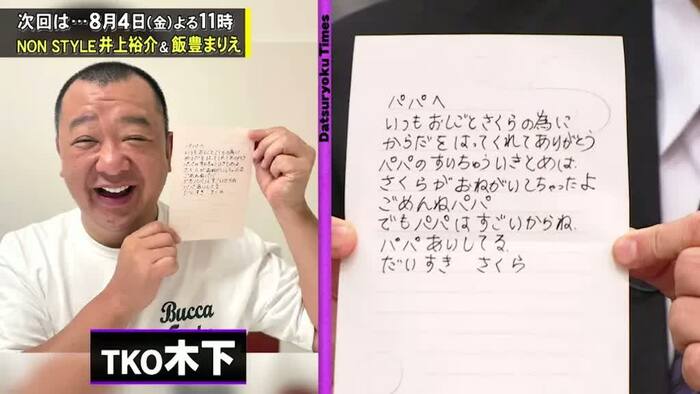 次回は…8月4日(金)よる11時
NON STYLE井上裕介&飯豊まりえ
Datsuryoku Times
パパへ
いつもおしごとさくらの為に
からだをはってくれてありがとう
パパのすいちゅういきとめは
さくらがおねがいしちゃったよ
ごめんねパパ
でもパパはすごいからね
パパあいしてる
だいすき さくら
Bucca
TKO木下